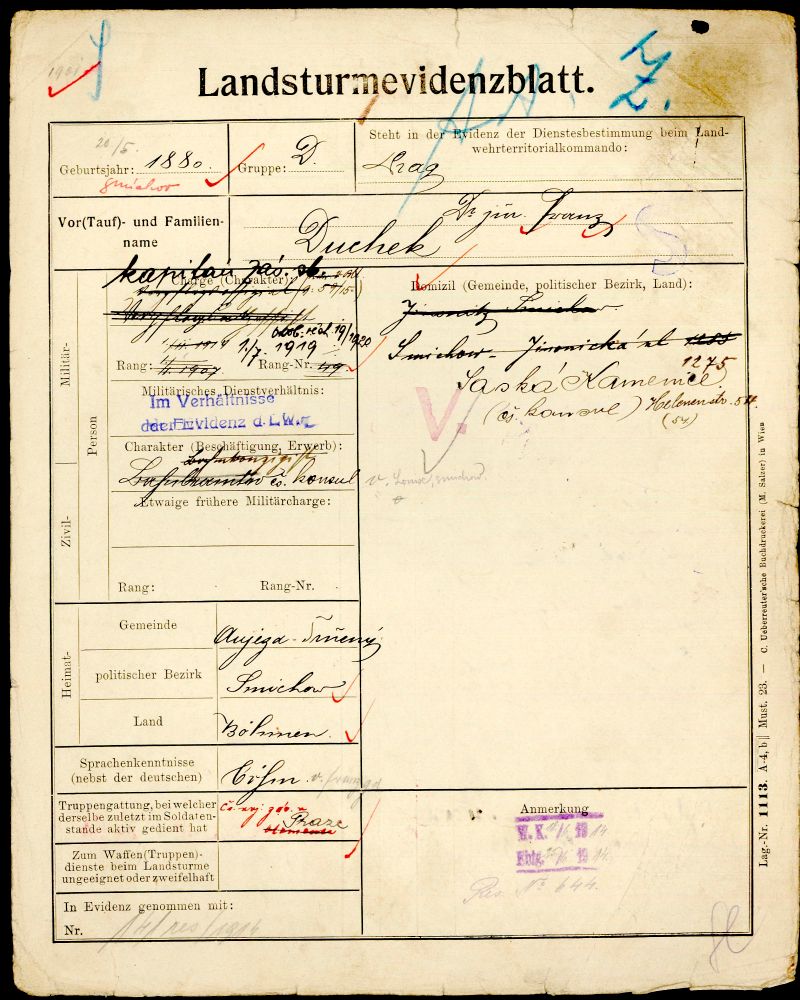 Landsturmevidenzblatt.
20/5.
Geburtsjahr: 1880.
Smichov
Gruppe: D.
Steht in der Evidenz der Dienstesbestimmung beim Land-
wehrterritorialkommando:
Prag
Vor(Tauf)- und Familien-
name
Dr. jur. Franz
Duchek
Militär-
Person
Zivil-
kapitán
Charge (Charakter):
1./7. 1919
19/1920
Rang: 1907
Rang-Nr. 49
Militärisches Dienstverhältnis:
Im Verhältnisse
der Evidenz d. L.W.
Charakter (Beschäftigung, Erwerb):
čs. konsul
Etwaige frühere Militärcharge:
Rang:
Rang-Nr.
Domizil (Gemeinde, politischer Bezirk, Land):
Jinonitz Smichow
Smichow - Jinonická ul. 1200
1275
Saská Kamenice
(čs. konsul) Helenenstr. 54
(54)
V.
Heimat-
Gemeinde
Aujezd-
politischer Bezirk
Smichow
Land
Böhmen.
Sprachenkenntnisse
(nebst der deutschen)
Böhm.
Truppengattung, bei welcher
derselbe zuletzt im Soldaten-
stande aktiv gedient hat
Praze
Zum Waffen(Truppen)-
dienste beim Landsturme
ungeeignet oder zweifelhaft
In Evidenz genommen mit:
Nr. 14/res/1916
Anmerkung
M. K. 1914
Rbtg. 1914.
Res. No 644.
Lag.-Nr. 1113. A-4, b|| Must. 23. — C. Ueberreuter'sche Buchdruckerei (M. Salzer) in Wien